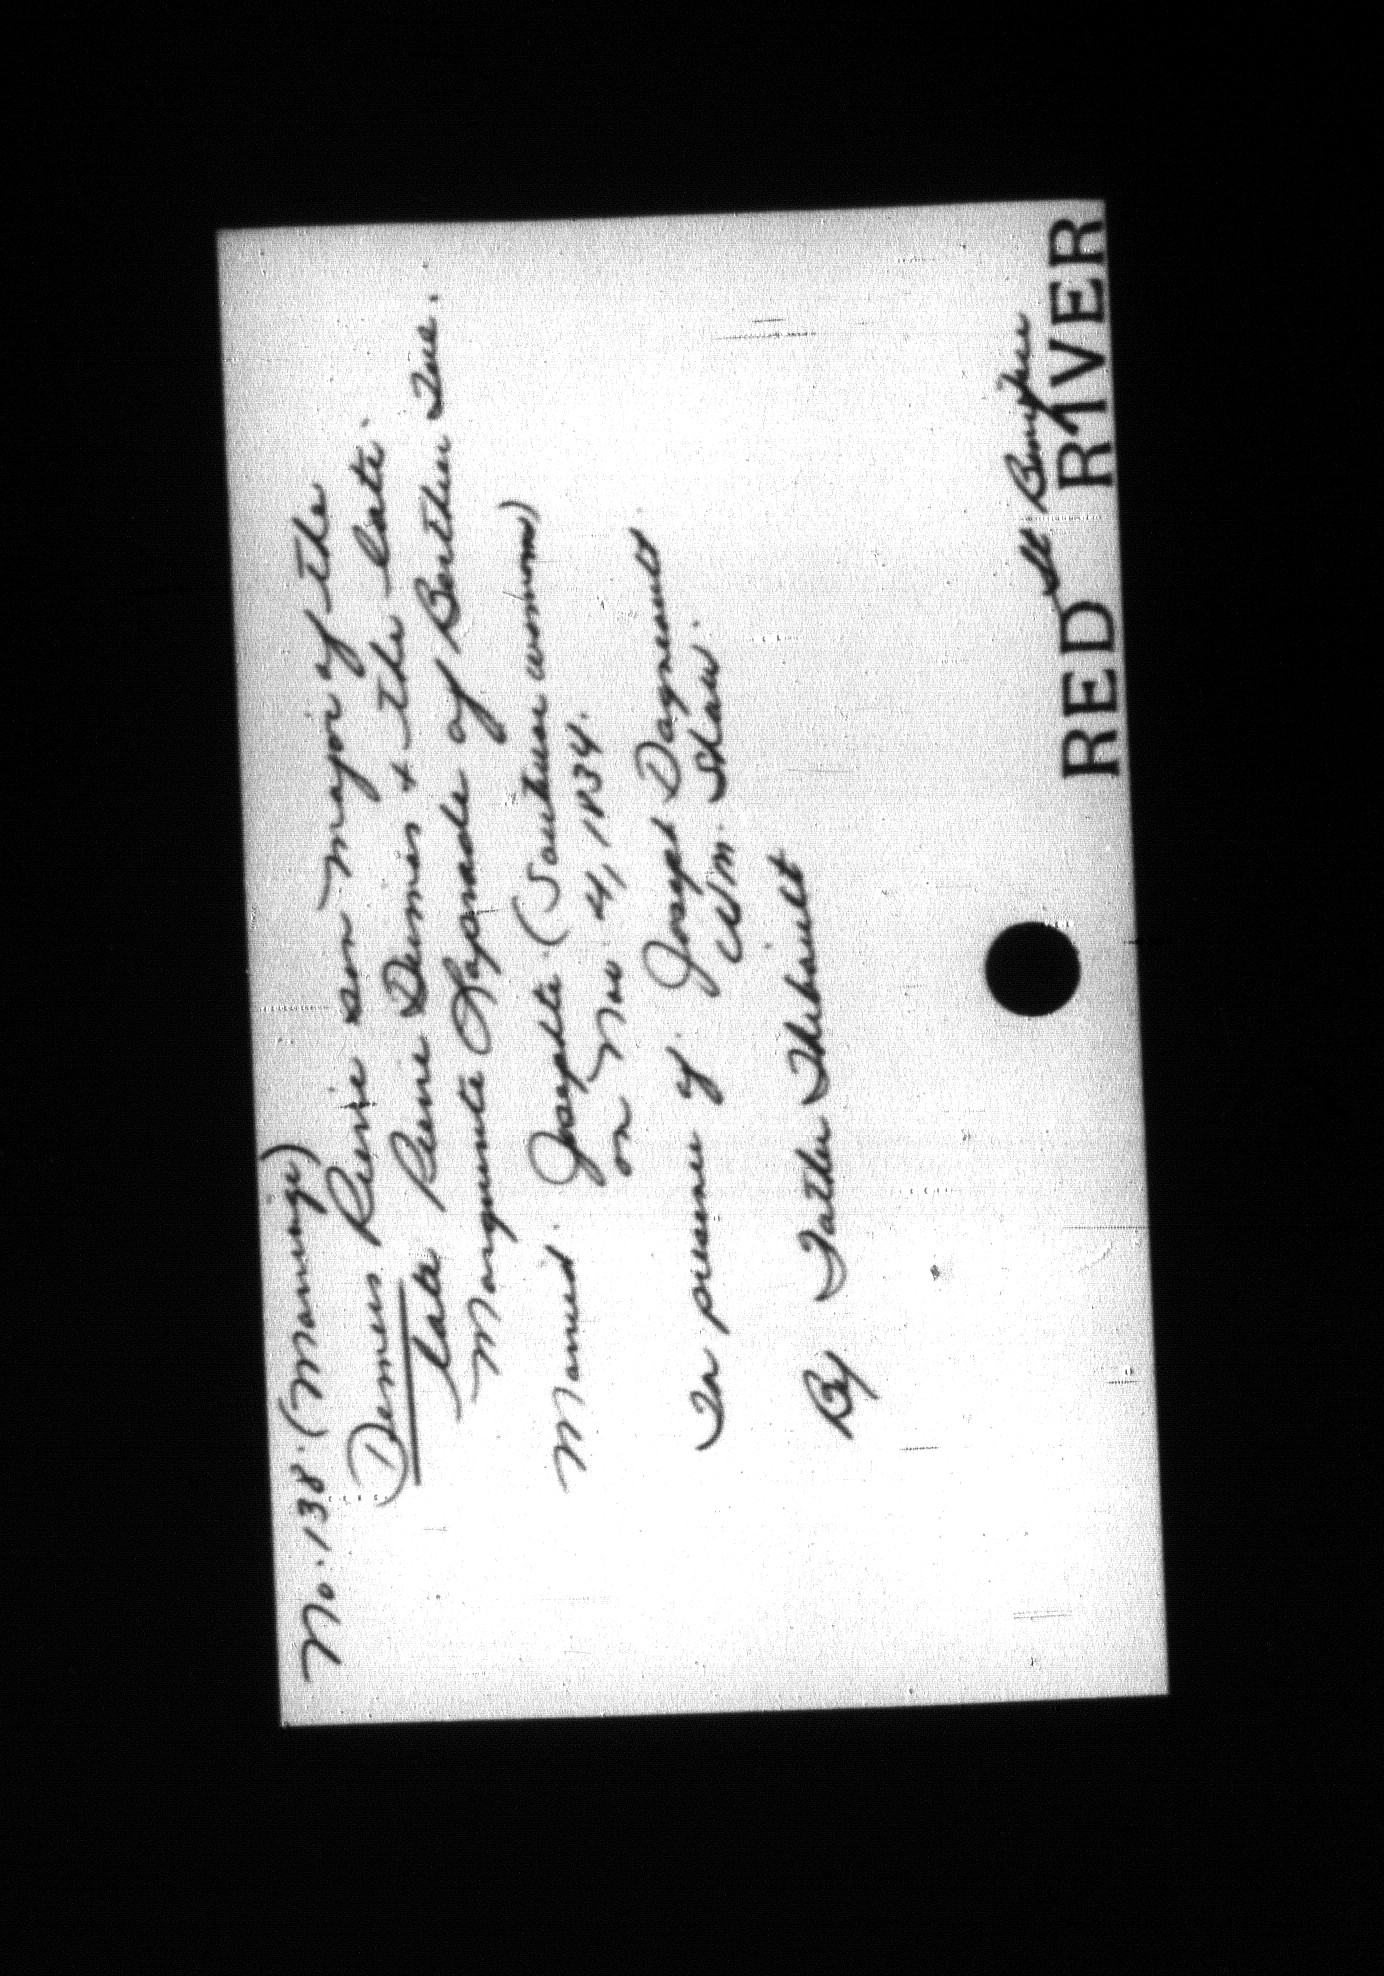 No. 138. (Marriage)
Demers Pierre son major of the
late Pierre Demers + the late
Marguerite Lagarde of Berthier Que.
Married. Josephte (Sauteuse woman)
on Nov 4, 1834.
In presence of. Joseph Dagneault
Wm. Shaw.
By Father Thibault
St Boniface
RED RIVER